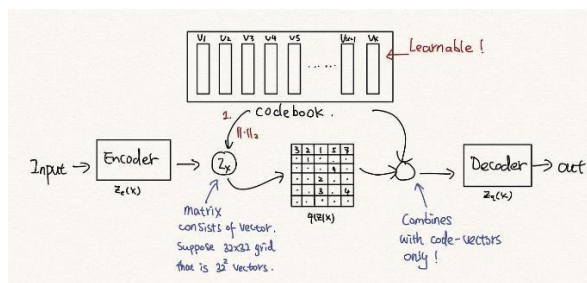 V1 V2 V3 V4 V5 ...... Vk-1 Vk
Learnable !
1.
codebook.
||·||2
Input → Encoder → Zx
Ze(x)
3 2 1 5 7
· 1 · · ·
· · · 9 ·
· · 2 · ·
· · 3 · 4
q(z|x)
Decoder → out
Zq(x)
matrix
consists of vector.
Suppose 32x32 grid
that is 32² vectors.
Combines
with code-vectors
only !